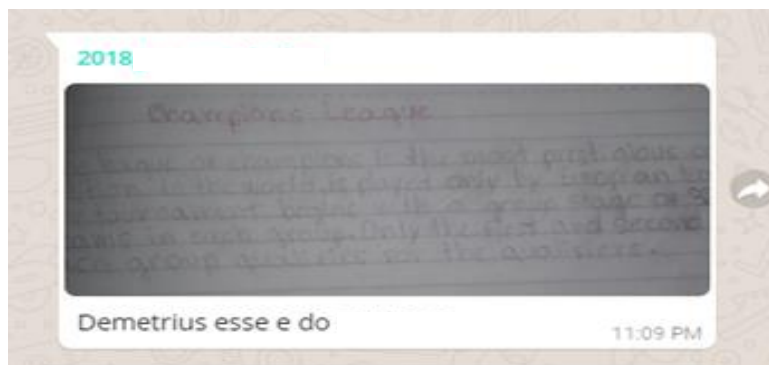 2018
Champions League
league of champions is the most prestigious
in the world, is played only by european
tournament begins with a group stage of
in each group. Only the first and second
group qualifies for the qualifiers.
Demetrius esse e do
11:09 PM